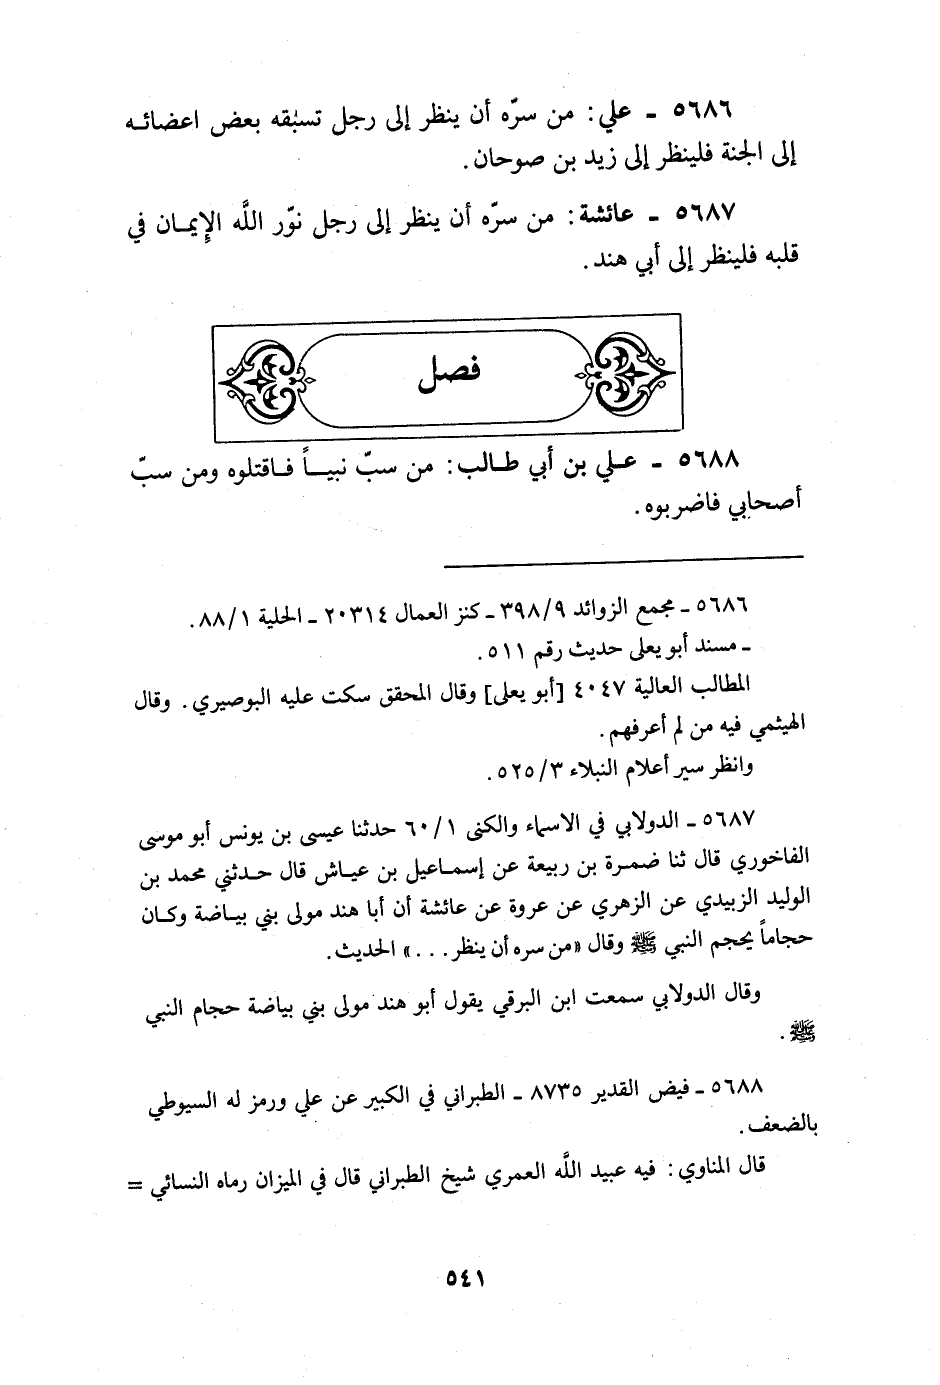 ٥٦٨٦ ـ علي: من سرّه أن ينظر إلى رجل تسبقه بعض اعضائه
إلى الجنة فلينظر إلى زيد بن صوحان.
٥٦٨٧ ـ عائشة: من سرّه أن ينظر إلى رجل نوّر اللَّه الإِيمان في
قلبه فلينظر إلى أبي هند.
فصل
٥٦٨٨ ـ علي بن أبي طالب: من سبّ نبياً فاقتلوه ومن سبّ
أصحابي فاضربوه.
٥٦٨٦ ـ مجمع الزوائد ٣٩٨/٩ ـ كنز العمال ٢٠٣١٤ ـ الحلية ٨٨/١.
ـ مسند أبو يعلى حديث رقم ٥١١.
المطالب العالية ٤٠٤٧ [أبو يعلى] وقال المحقق سكت عليه البوصيري. وقال
الهيثمي فيه من لم أعرفهم.
وانظر سير أعلام النبلاء ٥٢٥/٣.
٥٦٨٧ ـ الدولابي في الاسماء والكنى ٦٠/١ حدثنا عيسى بن يونس أبو موسى
الفاخوري قال ثنا ضمرة بن ربيعة عن إسماعيل بن عياش قال حدثني محمد بن
الوليد الزبيدي عن الزهري عن عروة عن عائشة أن أبا هند مولى بني بياضة وكان
حجاماً يحجم النبي ﷺ وقال «من سره أن ينظر . . .» الحديث.
وقال الدولابي سمعت ابن البرقي يقول أبو هند مولى بني بياضة حجام النبي
ﷺ.
٥٦٨٨ ـ فيض القدير ٨٧٣٥ ـ الطبراني في الكبير عن علي ورمز له السيوطي
بالضعف.
قال المناوي: فيه عبيد اللَّه العمري شيخ الطبراني قال في الميزان رماه النسائي =
٥٤١